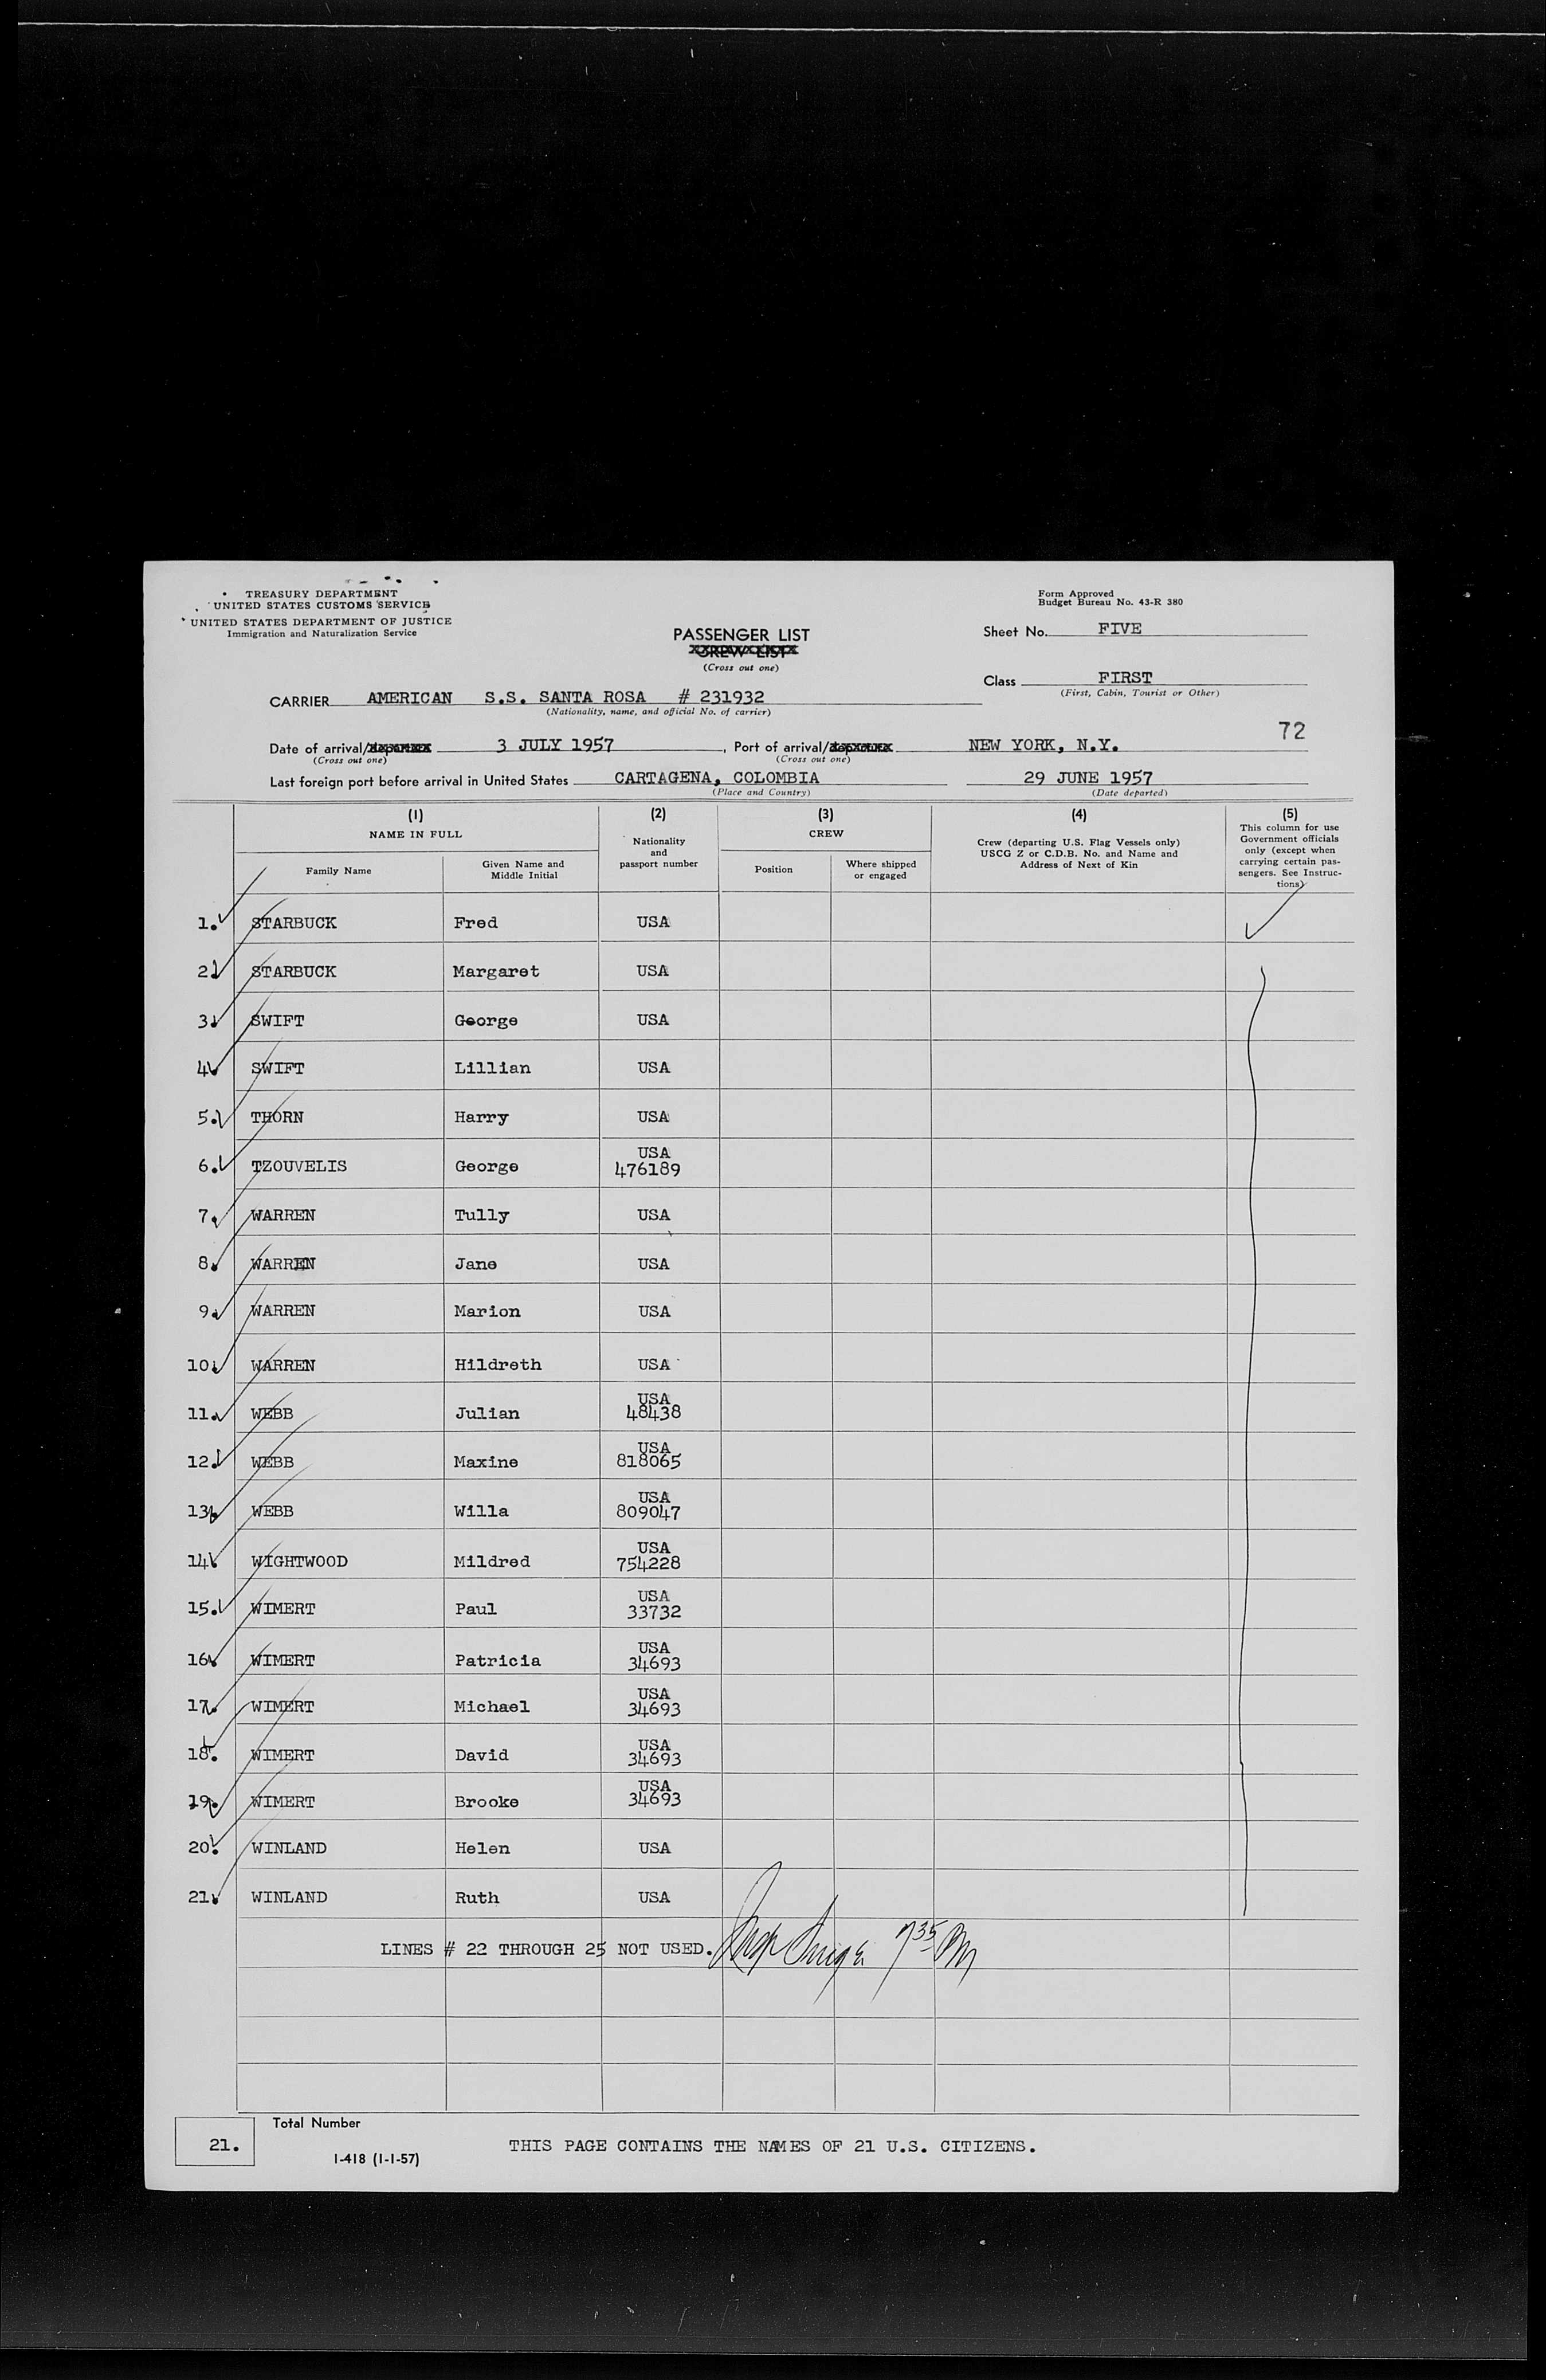 TREASURY DEPARTMENT
UNITED STATES CUSTOMS SERVICE
UNITED STATES DEPARTMENT OF JUSTICE
Immigration and Naturalization Service
Form Approved
Budget Bureau No. 43-R 380
PASSENGER LIST
CREW LIST
(Cross out one)
Sheet No. FIVE
Class FIRST
(First, Cabin, Tourist or Other)
CARRIER AMERICAN S.S. SANTA ROSA # 231932
(Nationality, name, and official No. of carrier)
72
Date of arrival/departure 3 JULY 1957, Port of arrival/departure NEW YORK, N.Y.
(Cross out one) (Cross out one)
Last foreign port before arrival in United States CARTAGENA, COLOMBIA 29 JUNE 1957
(Place and Country) (Date departed)
(1) (2) (3) (4) (5)
NAME IN FULL
Family Name
Given Name and
Middle Initial
Nationality
and
passport number
CREW
Position
Where shipped
or engaged
Crew (departing U.S. Flag Vessels only)
USCG Z or C.D.B. No. and Name and
Address of Next of Kin
This column for use
Government officials
only (except when
carrying certain pas-
sengers. See Instruc-
tions)
1. STARBUCK Fred USA
2. STARBUCK Margaret USA
3. SWIFT George USA
4. SWIFT Lillian USA
5. THORN Harry USA
6. TZOUVELIS George USA 476189
7. WARREN Tully USA
8. WARREN Jane USA
9. WARREN Marion USA
10. WARREN Hildreth USA
11. WEBB Julian USA 48438
12. WEBB Maxine USA 818065
13. WEBB Willa USA 809047
14. WIGHTWOOD Mildred USA 754228
15. WIMERT Paul USA 33732
16. WIMERT Patricia USA 34693
17. WIMERT Michael USA 34693
18. WIMERT David USA 34693
19. WIMERT Brooke USA 34693
20. WINLAND Helen USA
21. WINLAND Ruth USA
LINES # 22 THROUGH 25 NOT USED.
7 35 PM
Total Number
21.
I-418 (1-1-57)
THIS PAGE CONTAINS THE NAMES OF 21 U.S. CITIZENS.